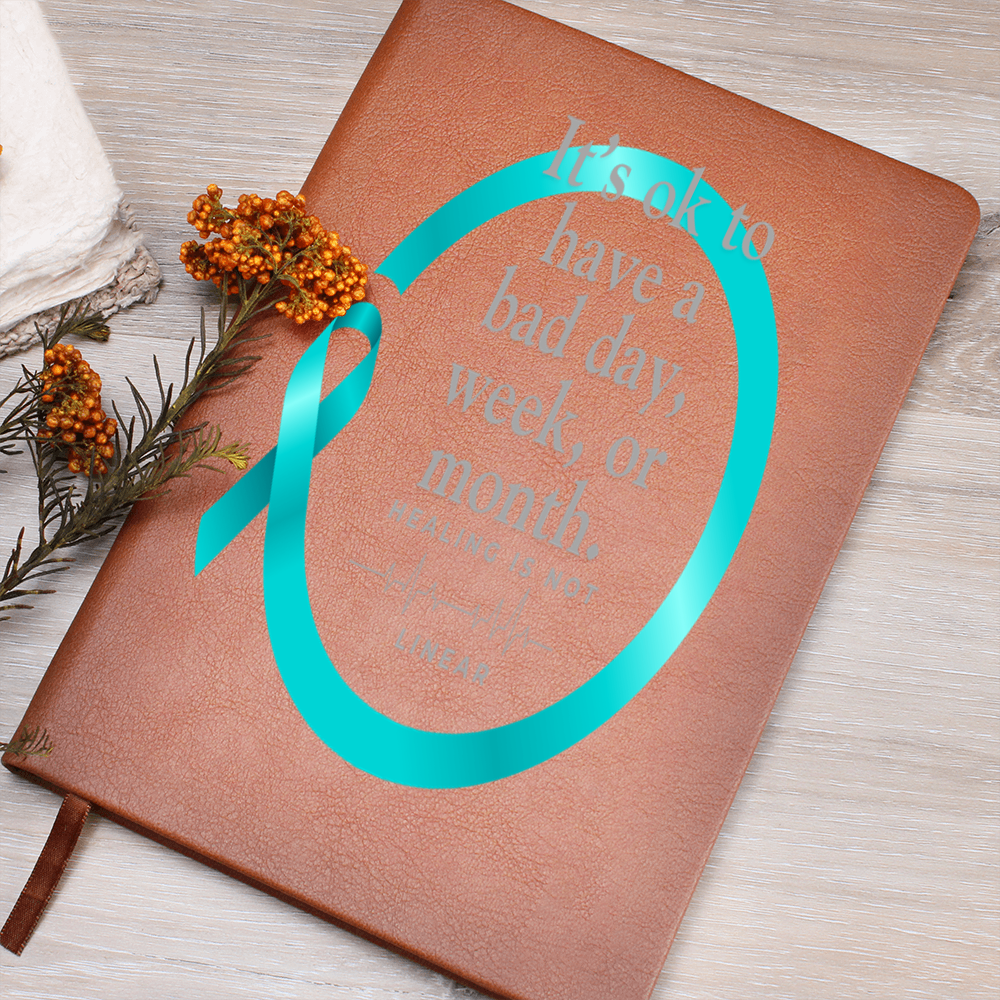 It's ok to
have a
bad day,
week, or
month.
HEALING IS NOT
LINEAR